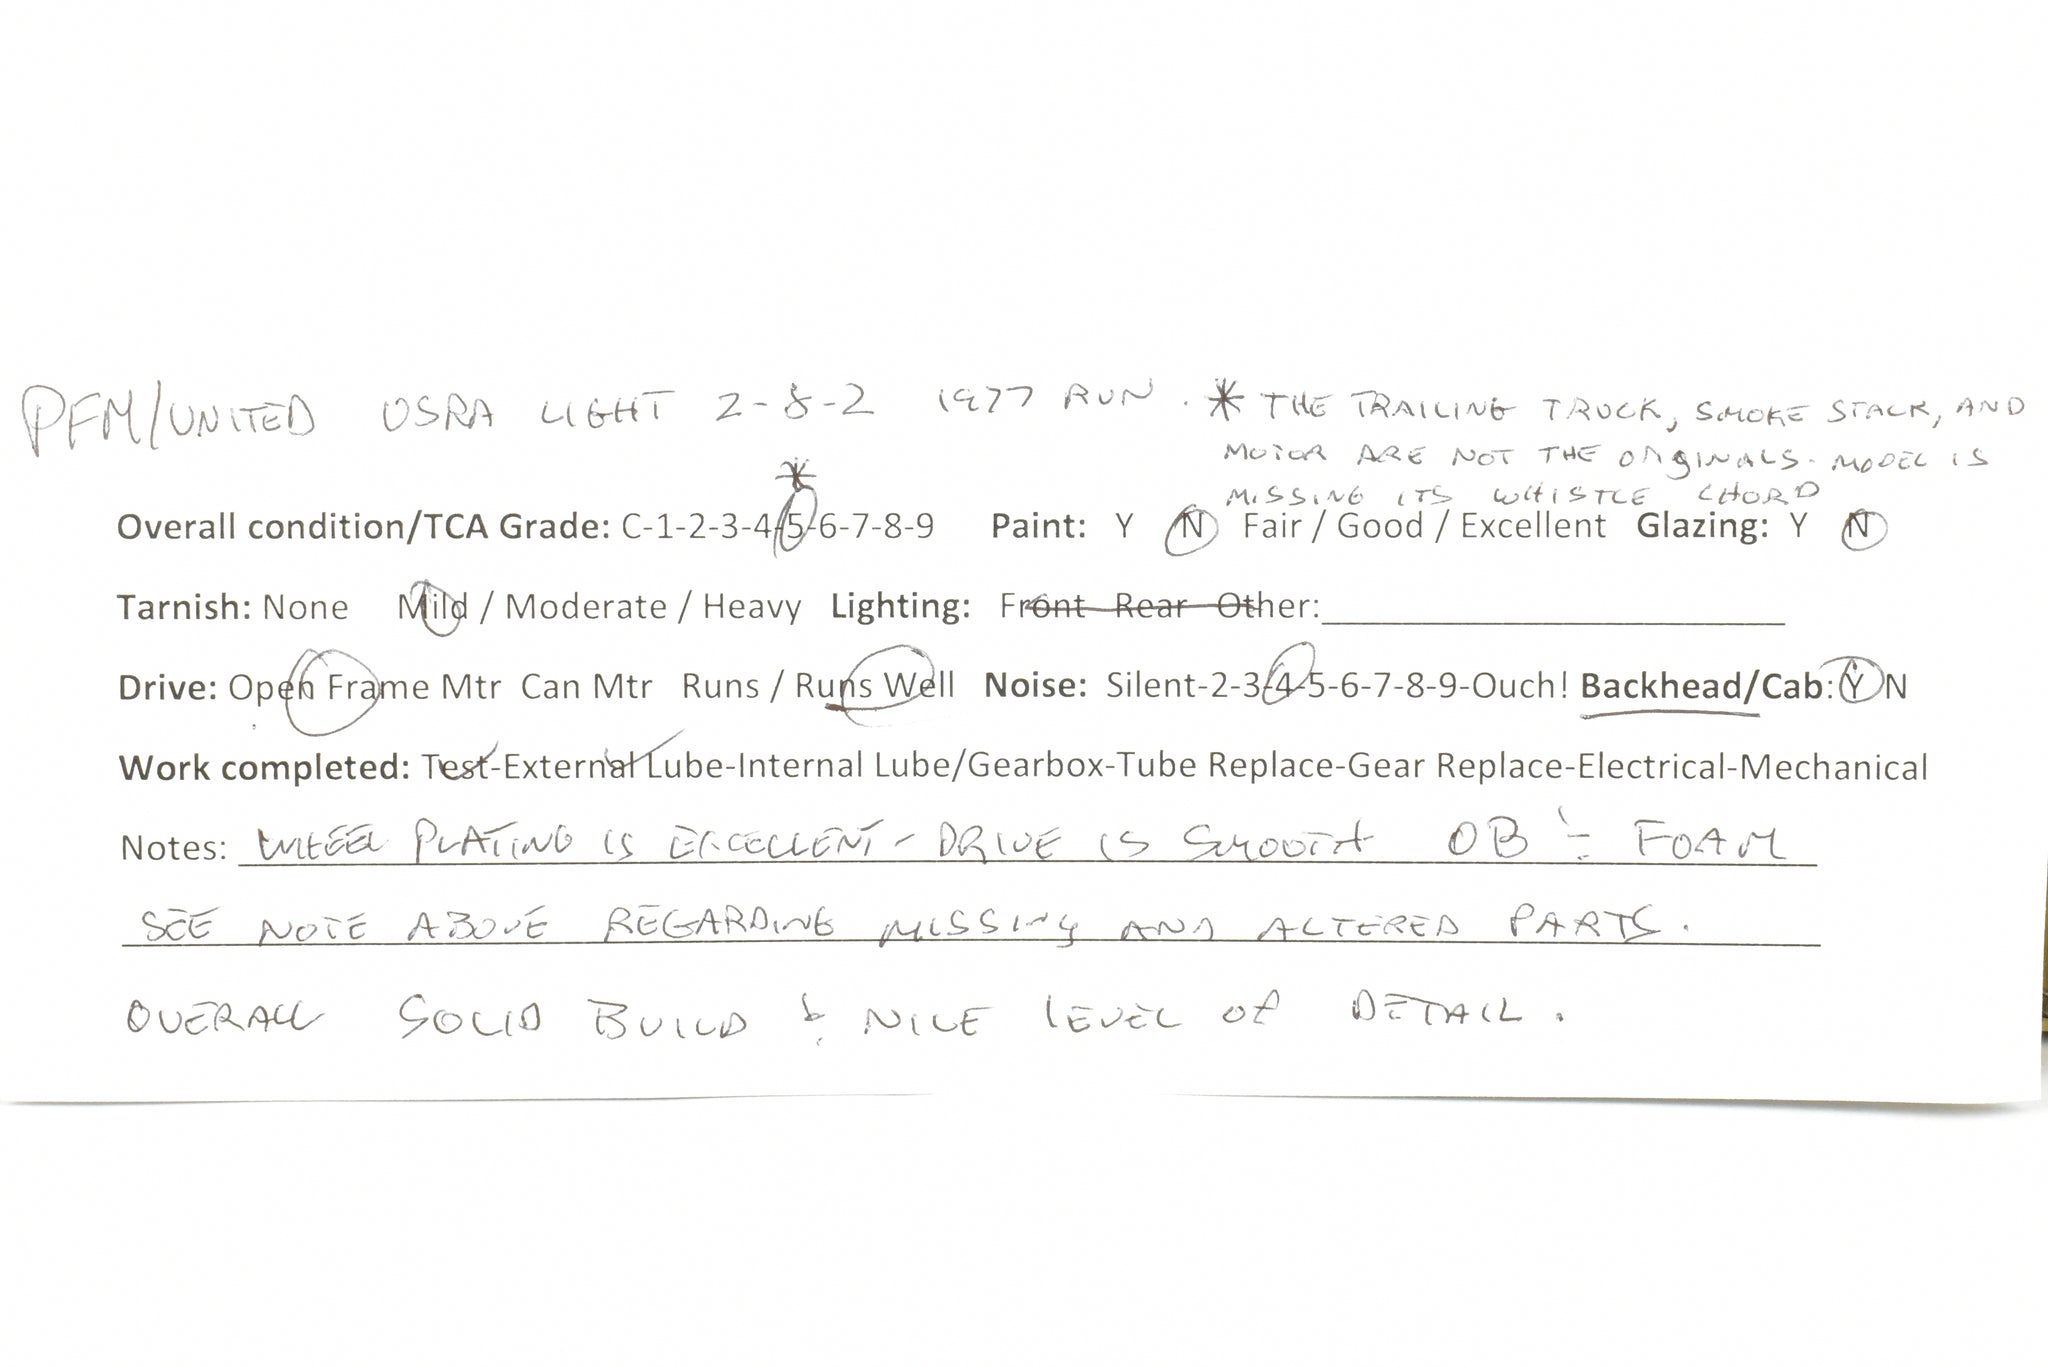 PFM/UNITED USRA LIGHT 2-8-2 1977 RUN. * THE TRAILING TRUCK, SMOKE STACK, AND
MOTOR ARE NOT THE ORIGINALS. MODEL IS
* MISSING ITS WHISTLE CHORD
Overall condition/TCA Grade: C-1-2-3-4-5-6-7-8-9 Paint: Y N Fair / Good / Excellent Glazing: Y N
Tarnish: None Mild / Moderate / Heavy Lighting: Front Rear Other:
Drive: Open Frame Mtr Can Mtr Runs / Runs Well Noise: Silent-2-3-4-5-6-7-8-9-Ouch! Backhead/Cab: Y N
Work completed: Test-External Lube-Internal Lube/Gearbox-Tube Replace-Gear Replace-Electrical-Mechanical
Notes: WHEEL PLATING IS EXCELLENT - DRIVE IS SMOOTH OB & FOAM
SEE NOTE ABOVE REGARDING MISSING AND ALTERED PARTS.
OVERALL SOLID BUILD & NICE LEVEL OF DETAIL.